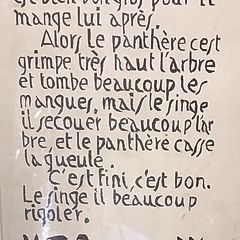 est bien bon gros pour le
mange lui après.
Alors le panthère c'est
grimpe très haut l'arbre
et tombe beaucoup les
mangues, mais le singe
il secouer beaucoup l'ar
bre, et le panthère casse
la gueule.
C'est fini, c'est bon.
Le singe il beaucoup
rigoler.